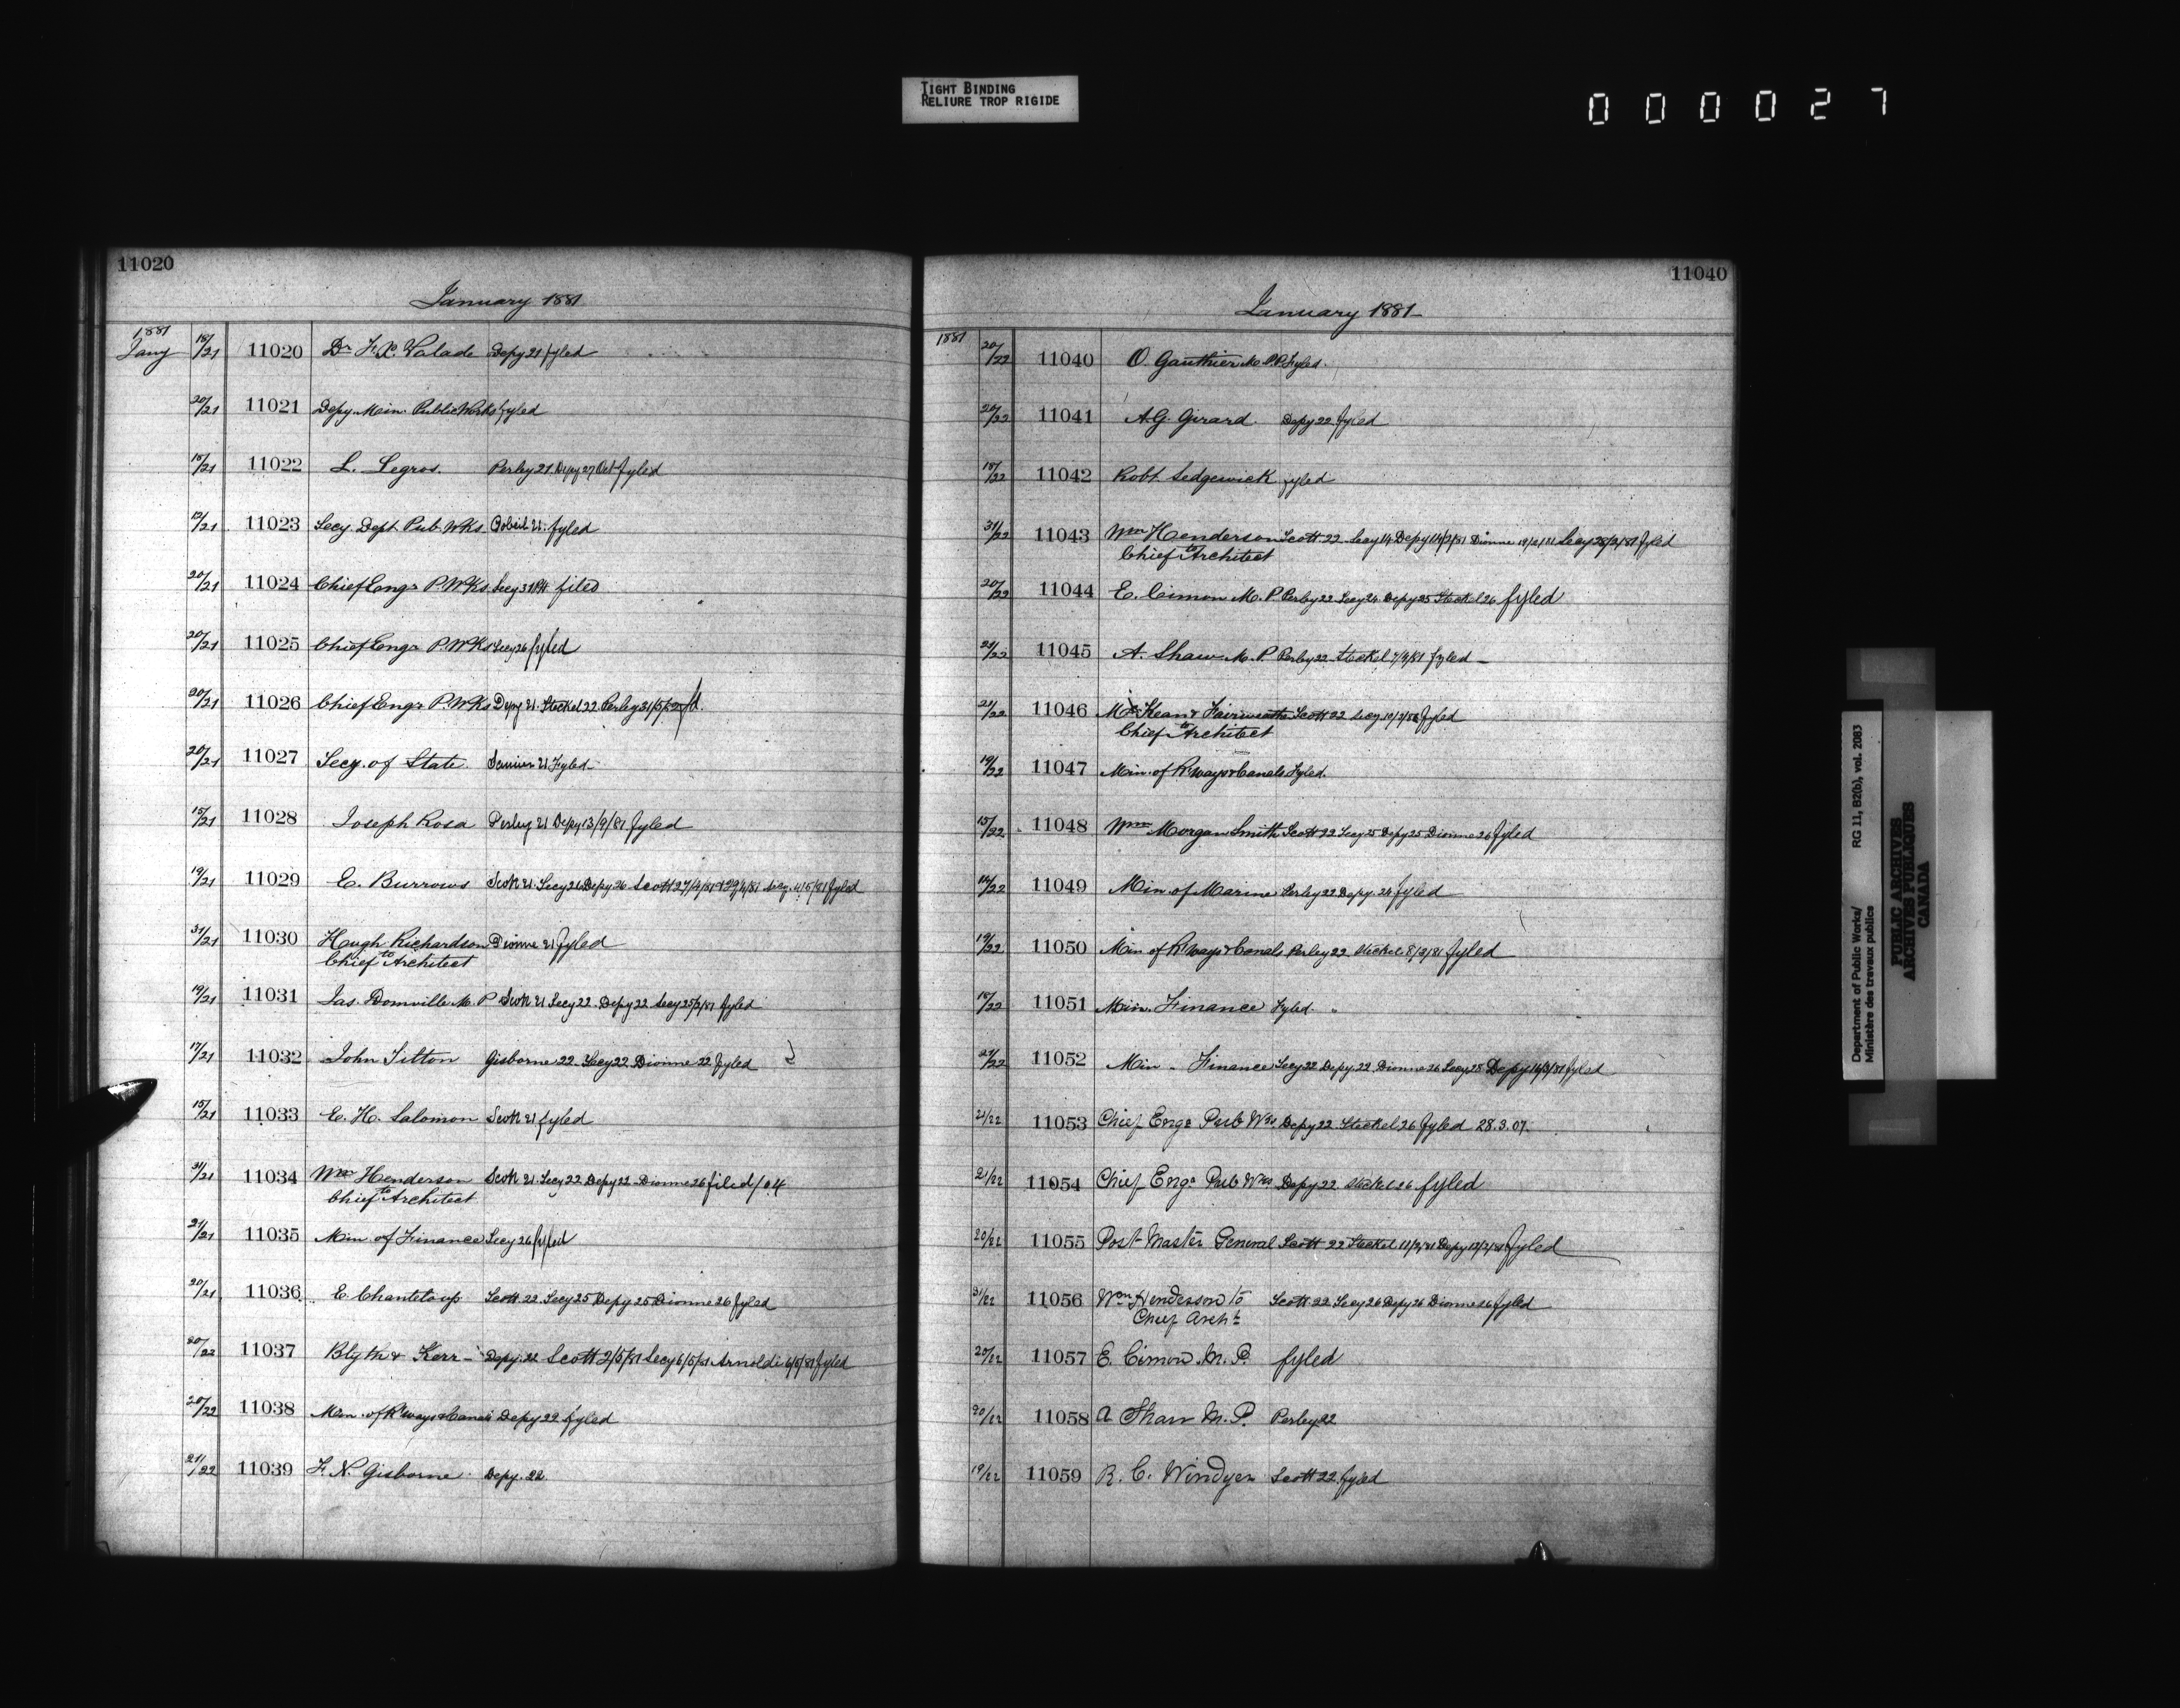 TIGHT BINDING
RELIURE TROP RIGIDE
000027
11020
January 1881
1881
Jany 18/21 11020 Dr F. X. Valade Depy 21 fyled
20/21 11021 Depy Min. Public Works fyled
18/21 11022 L. Legros. Perley 21 Depy 27 Oct fyled
/21 11023 Secy. Dept. Pub. Wks 21. fyled
20/21 11024 Chief Engr P. Wks Secy filed
20/21 11025 Chief Engr P. Wks Secy 26 fyled
20/21 11026 Chief Engr P. Wks Depy 21. Steckel 22 Perley 31/5/
20/21 11027 Secy. of State. 21 Fyled
15/21 11028 Joseph Rosa Perley 21 Depy 13/9/81 fyled
19/21 11029 E. Burrows Scott 21. Secy 26 Depy 26 Scott 27/4/81 Secy. 4/5/81 fyled
31/21 11030 Hugh Richardson Dionne 21 fyled
to
Chief Architect
19/21 11031 Jas. Domville M. P Scott 21 Secy 22. Depy 22 Secy 25/2/81 fyled
17/21 11032 John Titton Gisborne 22. Secy 22 Dionne 22 fyled
15/21 11033 E. H. Salomon Scott 21 fyled
31/21 11034 Wm Henderson Scott 21. Secy 22 Depy 22 Dionne 26 filed /04
to
Chief Architect
21/21 11035 Min of Finance Secy 26 fyled
20/21 11036 E. Chanteloup Scott 22 Secy 25 Depy 25 Dionne 26 fyled
20/22 11037 Blyth & Kerr - Depy. 22 Scott 2/5/81 Secy 6/5/81 Arnoldi 6/5/81 fyled
20/22 11038 Min. of R'ways & Canals Depy 22 fyled
21/22 11039 F. N. Gisborne. Depy. 22
11040
January 1881
1881 20/22 11040 O. Gauthier M. P. P. Fyled.
20/22 11041 A. G. Girard. Depy 22 fyled
18/22 11042 Robt. Sedgewick fyled
31/22 11043 Wm Henderson Scott 22 Secy 14 Depy 14/2/81 Dionne 19/2/81 Secy 28/2/81 fyled
to
Chief Architect
20/22 11044 E. Cimon M. P Perley 22 Secy 24 Depy 25 Steckel 26 fyled
20/22 11045 A. Shaw M. P. Perley 22 Steckel 7/3/81 fyled
21/22 11046 McKean & Fairweather Scott 22 Secy fyled
to
Chief Architect
19/22 11047 Min. of R'ways & Canals Fyled.
15/22 11048 Wm Morgan Smith Scott 22 Secy 25 Depy 25 Dionne 26 fyled
14/22 11049 Min of Marine Perley 22 Depy. 24 fyled
19/22 11050 Min of R'ways & Canals Perley 22 Steckel 8/3/81 fyled
18/22 11051 Min. Finance Fyled.
21/22 11052 Min. Finance Secy 22 Depy. 22 Dionne 26 Secy 28 Depy 16/3/81 fyled
21/22 11053 Chief Engr Pub Wks Depy 22 Steckel 26 fyled 28.3.07.
21/22 11054 Chief Engr Pub Wks Depy 22. Steckel 26 fyled
20/22 11055 Post Master General Scott 22 Steckel 11/2/81 Depy 12/2/81 fyled
31/22 11056 Wm Henderson to Scott 22 Secy 26 Depy 26 Dionne 26 fyled
Chief Archt
20/22 11057 E. Cimon. M. P. fyled
20/22 11058 A Shaw M. P. Perley 22
19/22 11059 R. C. Windyer Scott 22. fyled
Department of Public Works/ RG 11, B2(b), vol. 2083
Ministère des travaux publics
PUBLIC ARCHIVES
ARCHIVES PUBLIQUES
CANADA